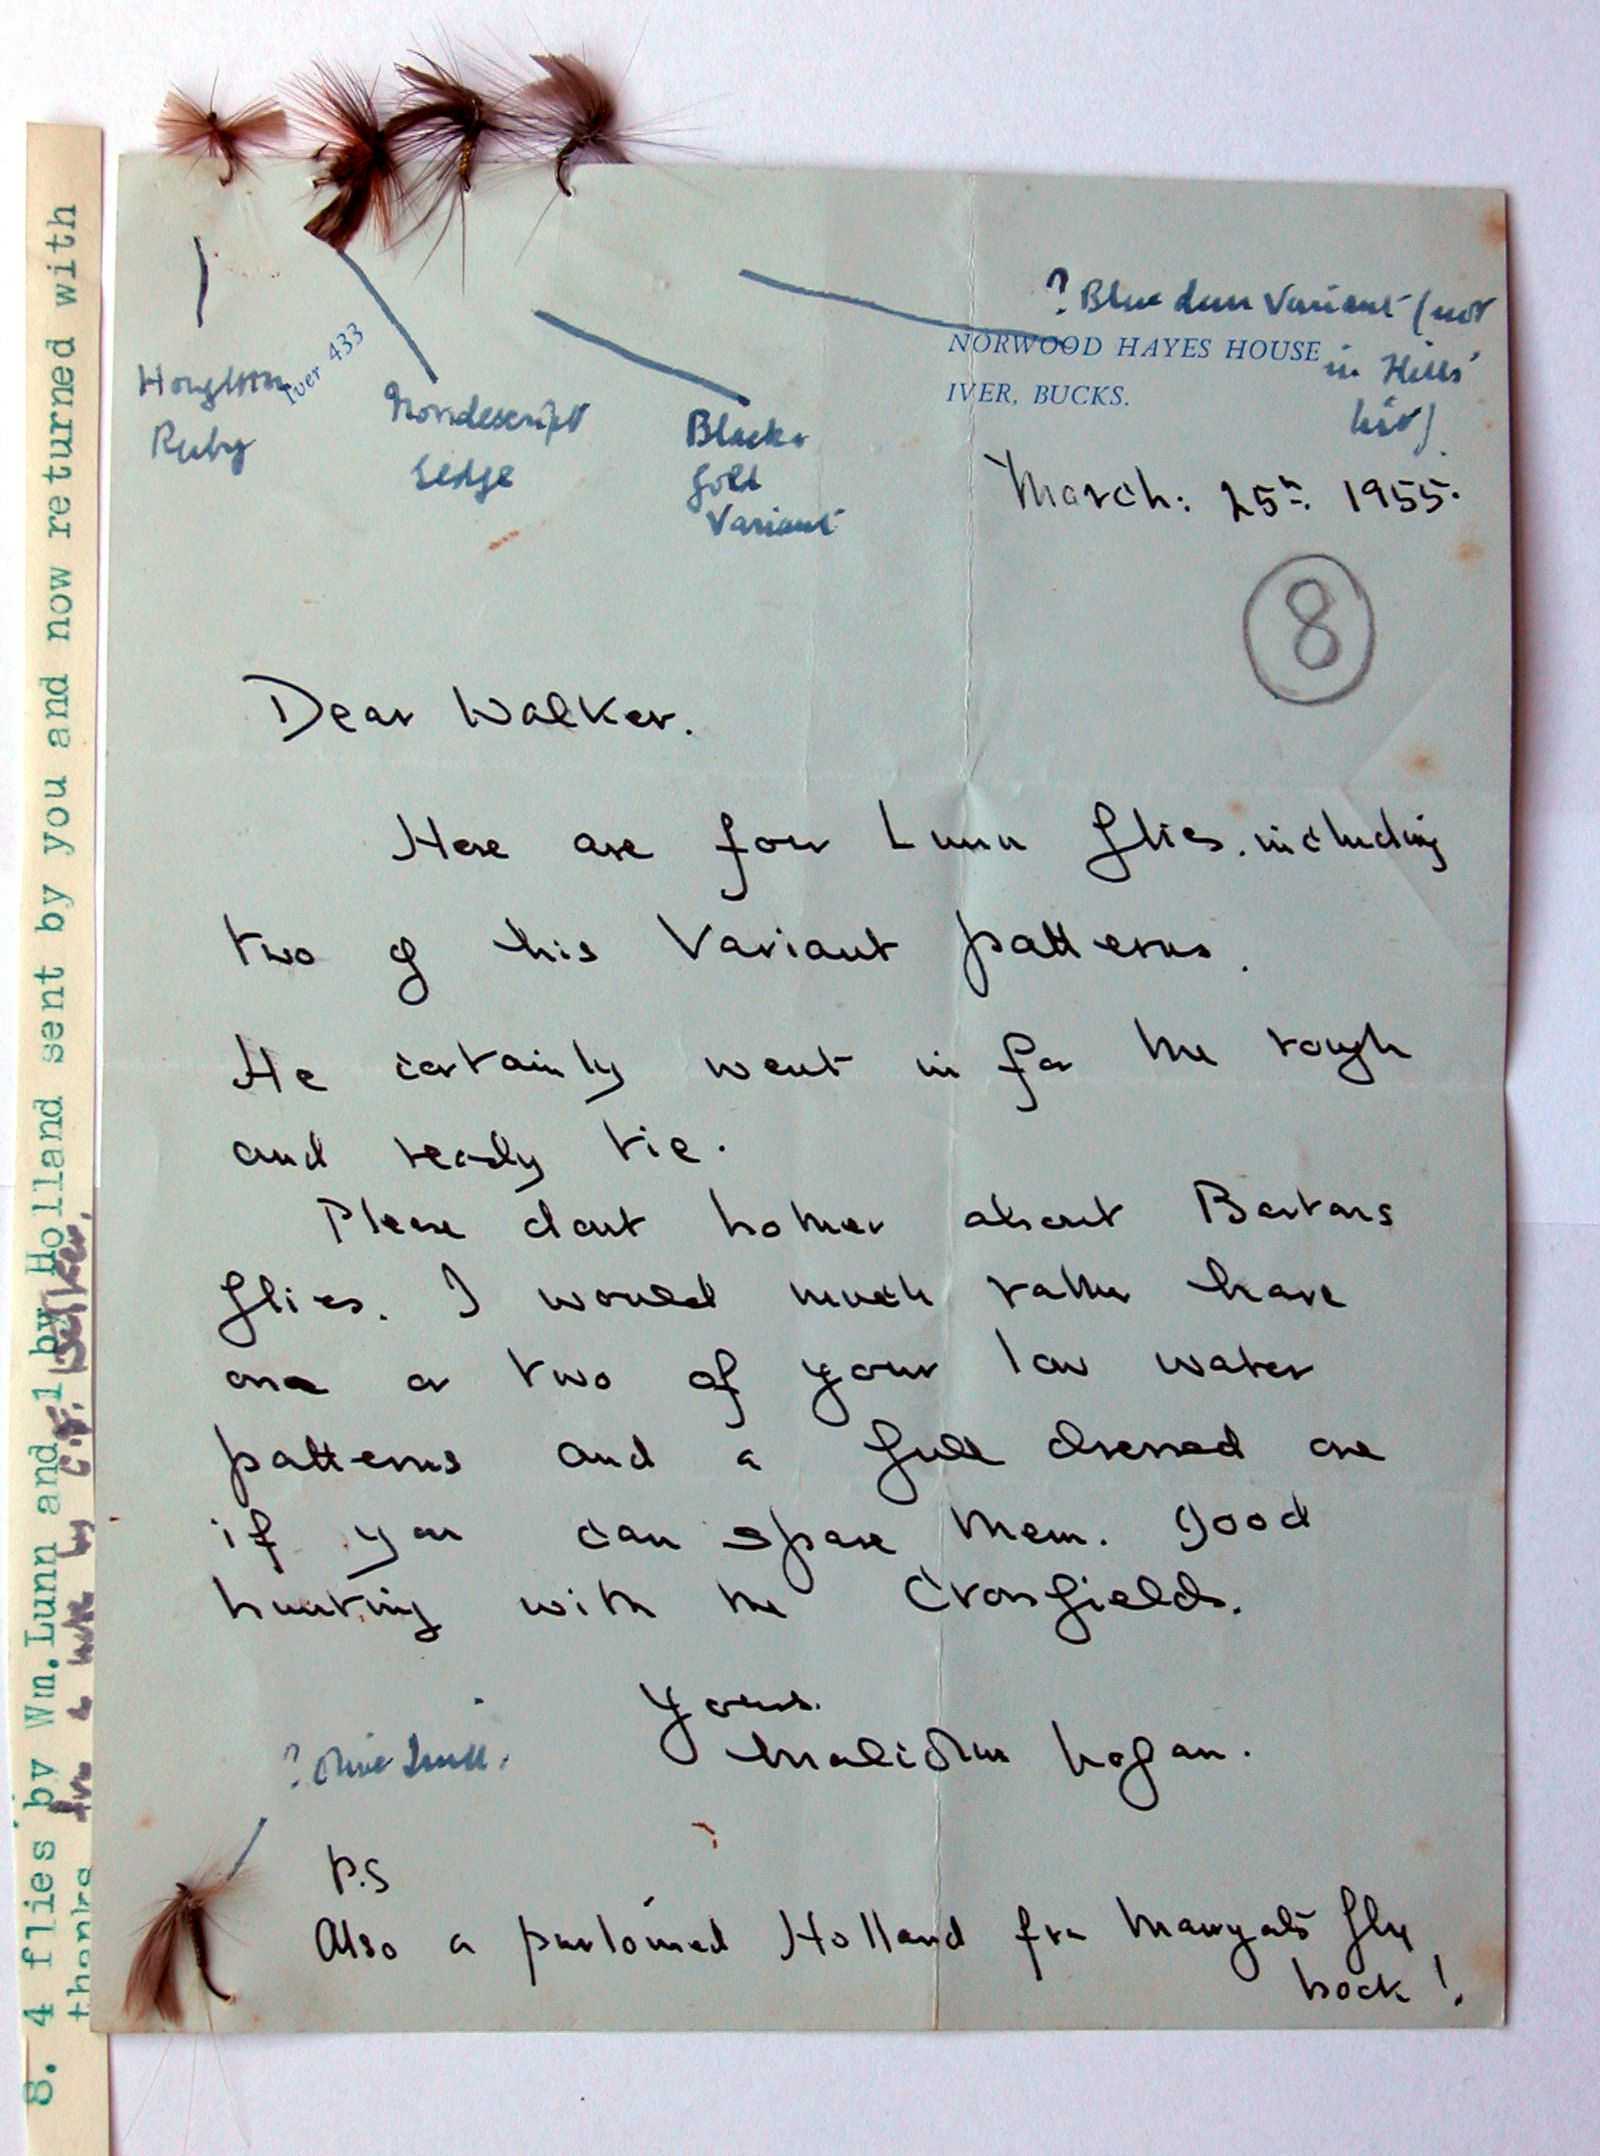 8. 4 flies by Wm. Lunn and 1 by Holland sent by you and now returned with
thanks
by C.F. Walker.
Houghton
Ruby
Iver 433
Nondescript
Sedge
Black &
Gold
Variant
? Blue dun Variant (not
in Hills'
list)
NORWOOD HAYES HOUSE
IVER, BUCKS.
March: 25th. 1955.
8
Dear Walker.
Here are four Lunn flies. including
two of his Variant patterns.
He certainly went in for the rough
and ready tie.
Please dont bother about Bartons
flies. I would much rather have
one or two of your low water
patterns and a full dressed one
if you can spare them. Good
hunting with the Crossfields.
Yours.
hogan.
? Olive Quill.
P.S
Also a purloined Holland from Marryat's fly
book!